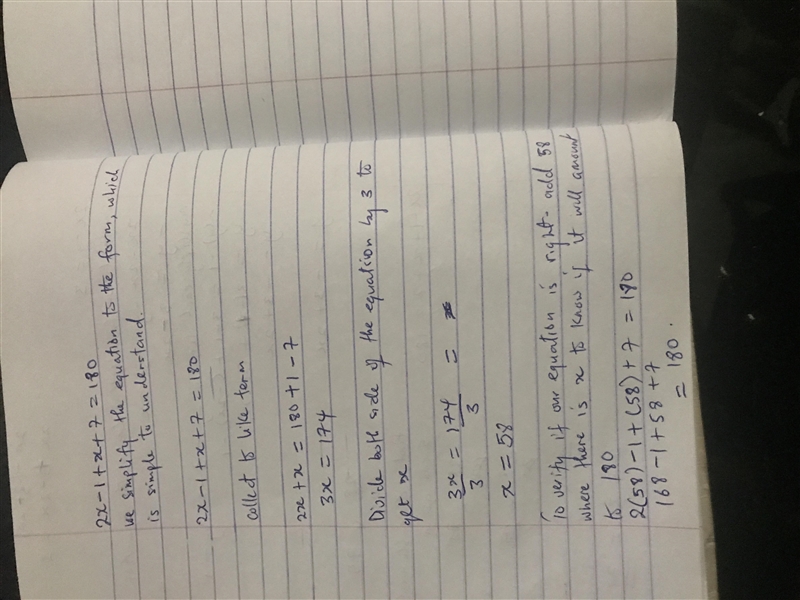 2x-1+x+7=180
we simplify the equation to the form, which
is simple to understand.
2x-1+x+7=180
collect to like term
2x+x = 180+1-7
3x = 174
Divide both side of the equation by 3 to
get x
3x/3 = 174/3 =
x = 58
To verify if our equation is right. add 58
where there is x to know if it will amount
to 180
2(58)-1+(58)+7 = 180
168-1+58+7
= 180.